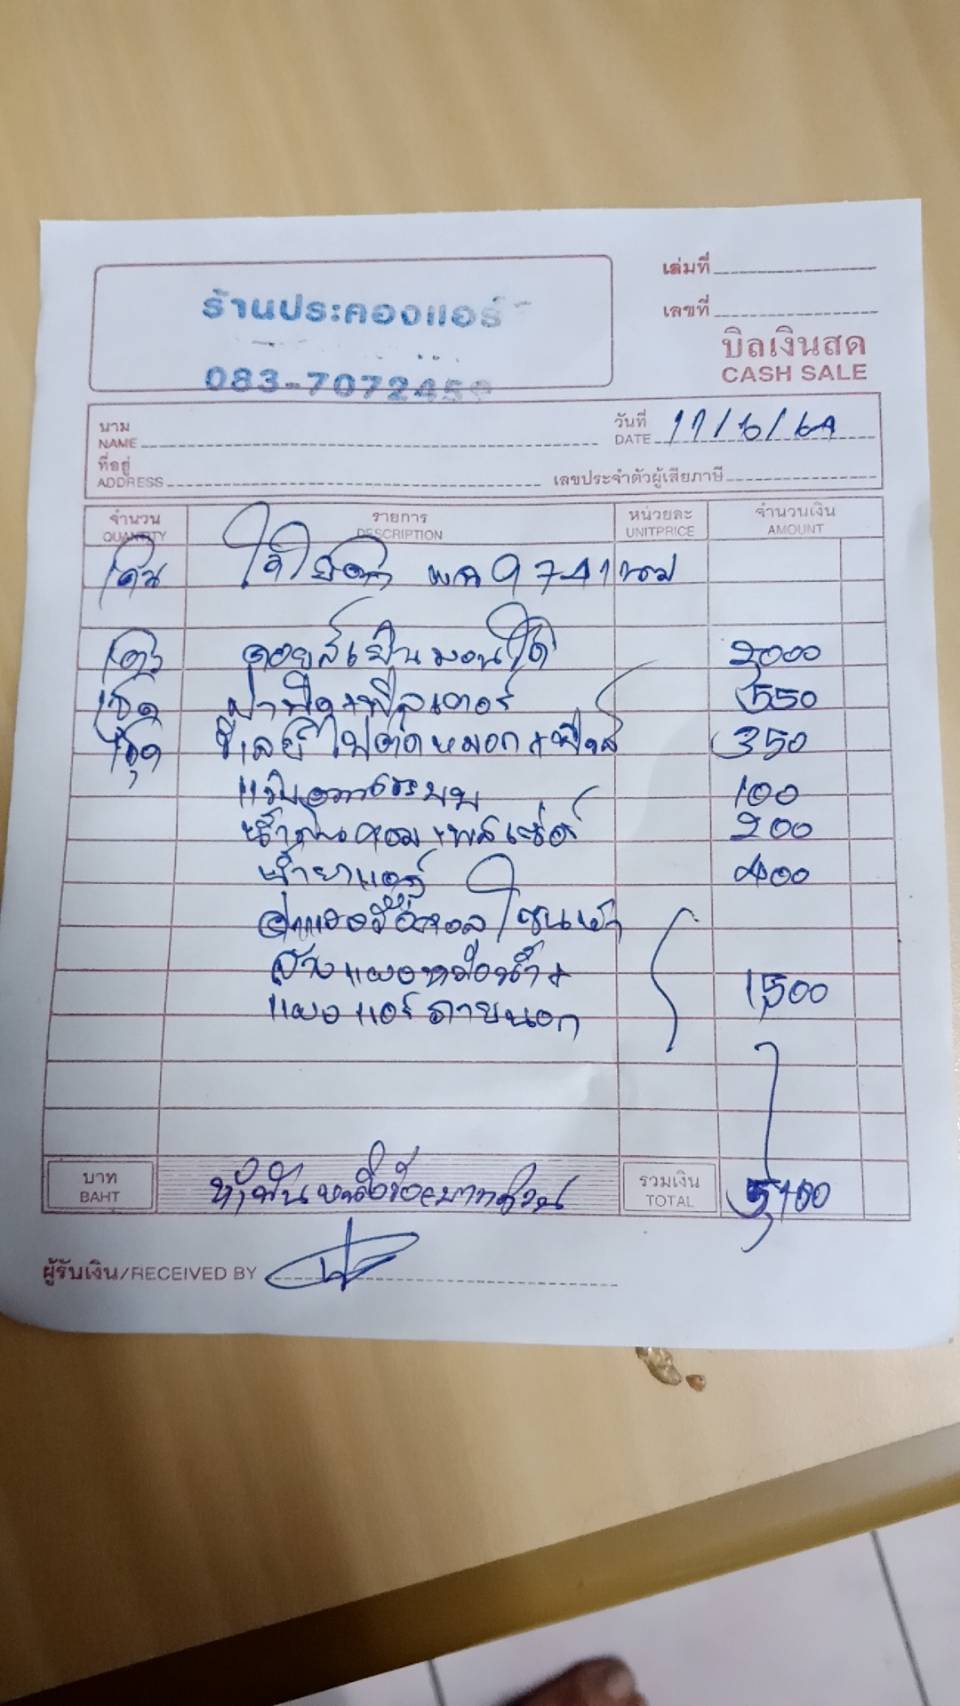 ร้านประคองแอร์
083-707245
เล่มที่
เลขที่
บิลเงินสด
CASH SALE
นาม
NAME
วันที่
DATE 11/6/69
ที่อยู่
ADDRESS
เลขประจำตัวผู้เสียภาษี
จำนวน รายการ หน่วยละ จำนวนเงิน
QUANTITY DESCRIPTION UNITPRICE AMOUNT
9741 นม
คอยล์เย็น 2000
ฝาปิด+ฟิลเตอร์ 550
รีเลย์ไฟตัดหมอก+ฟิวส์ 350
แว๊คทำระบบ 100
น้ำมันคอมเพรสเซอร์ 200
น้ำยาแอร์ 400
ล้างแผงหม้อน้ำ+ 1,500
แผงแอร์ภายนอก
บาท
BAHT
ห้าพันหนึ่งร้อยบาทถ้วน
รวมเงิน
TOTAL
5,100
ผู้รับเงิน/RECEIVED BY